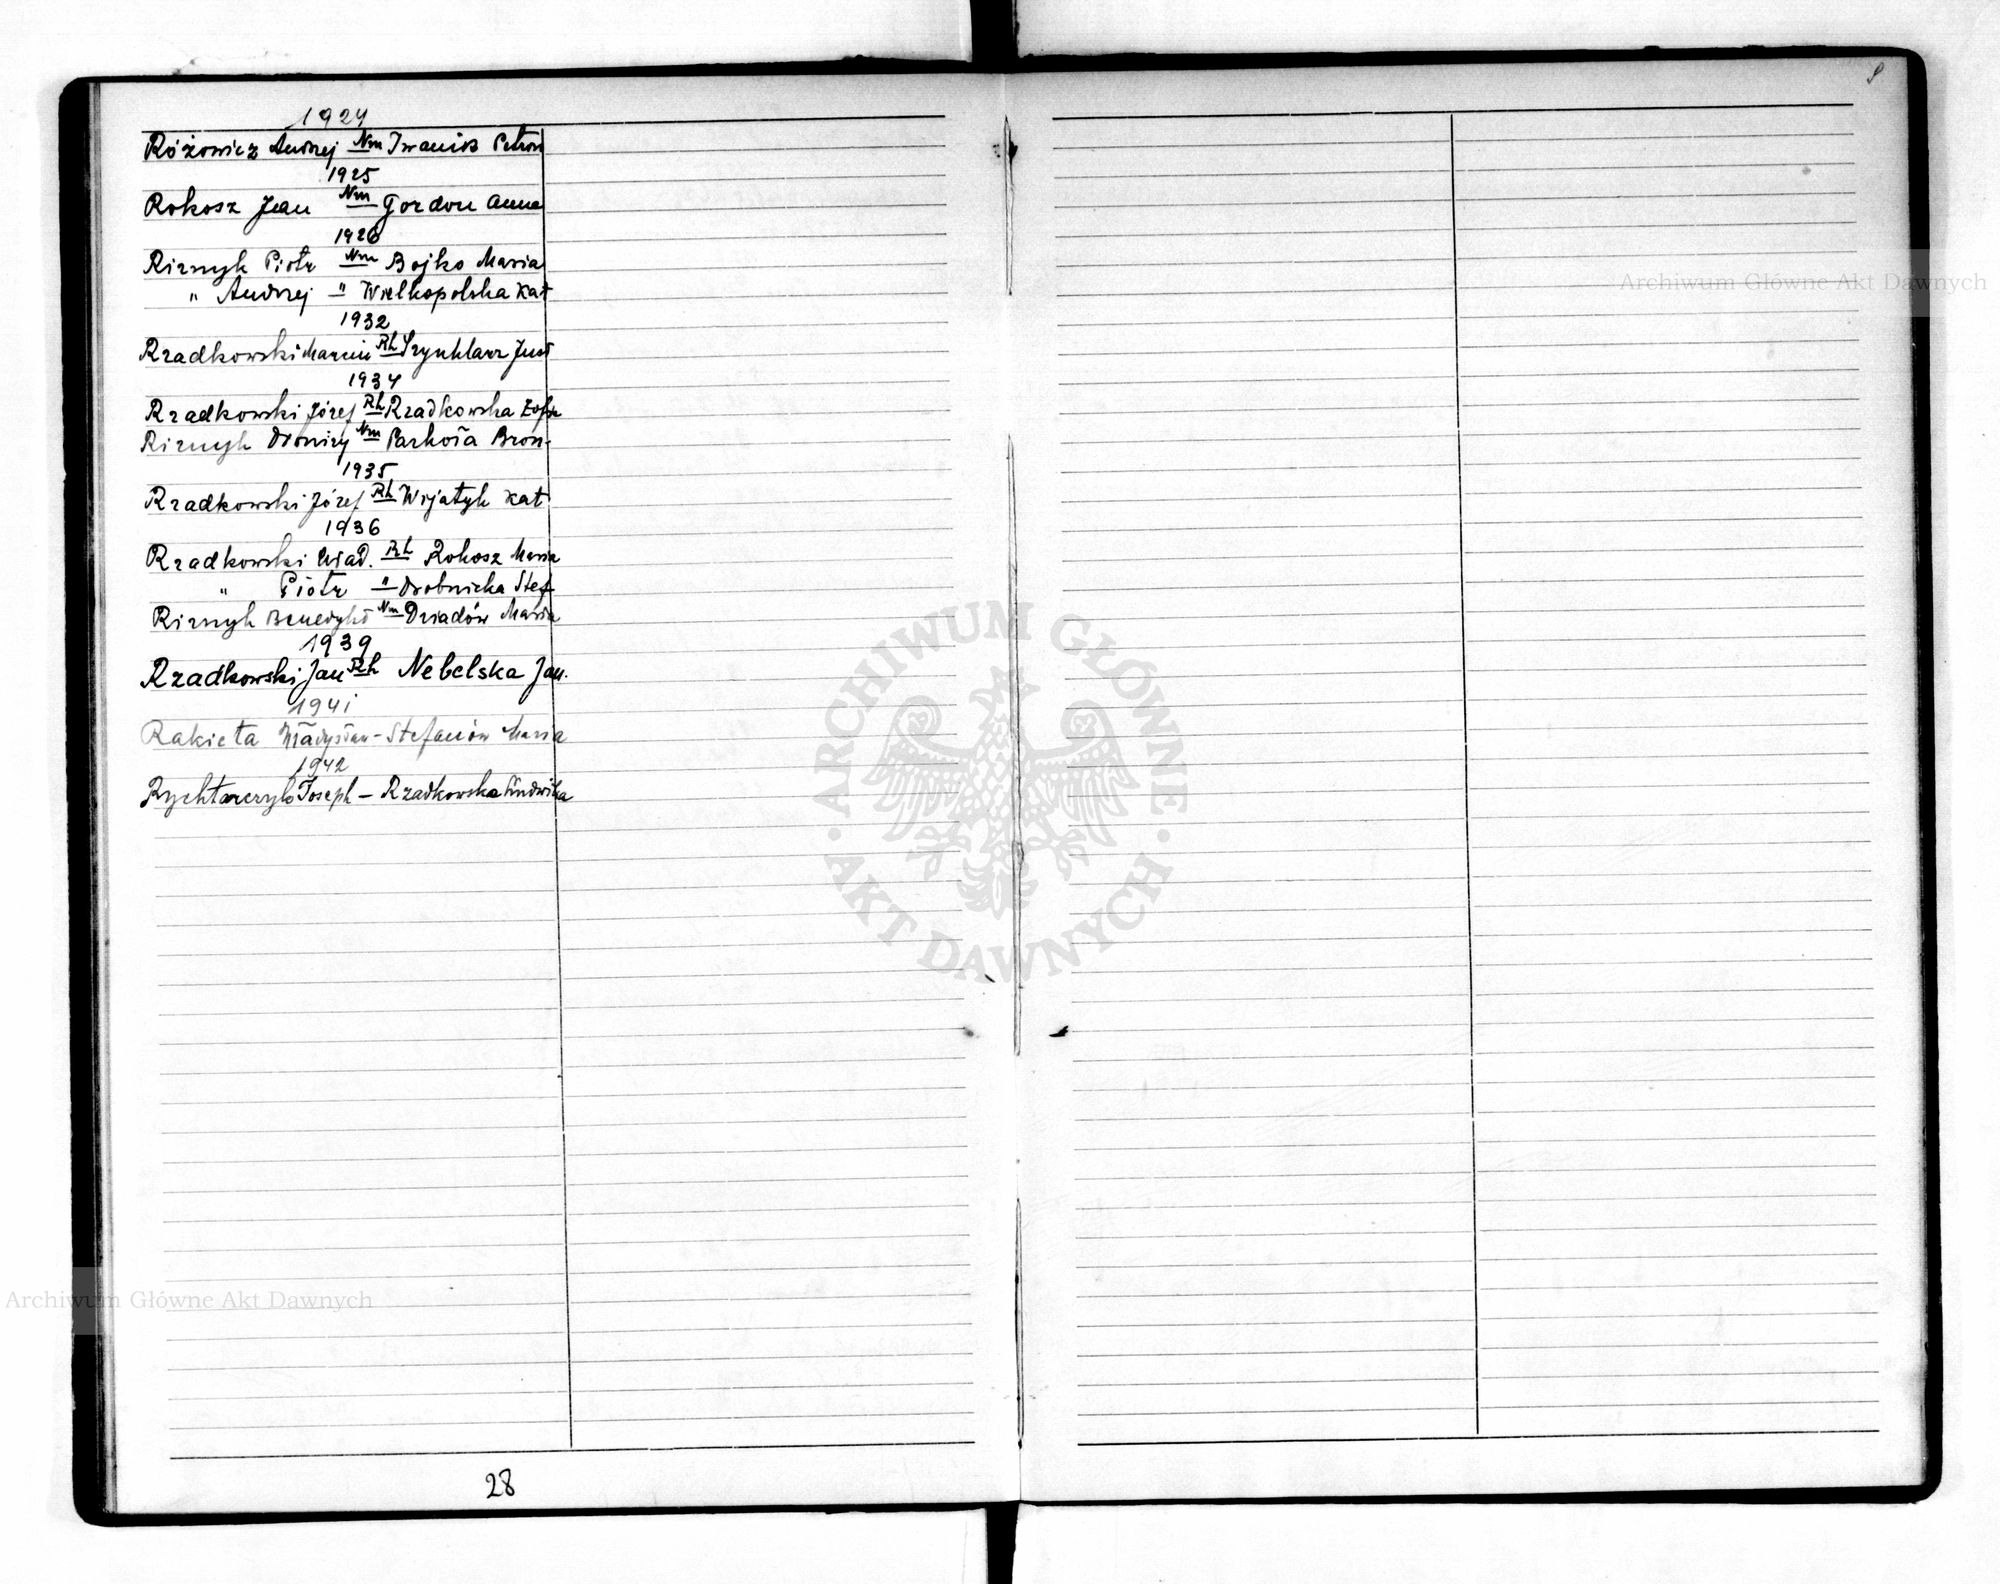 1924
Różowicz Andrzej Nm Iwanicka Petron
1925
Rokosz Jan Nm Gordon Anna
1926
Riznyk Piotr Nm Bojko Maria
" Andrzej " Wielkopolska Kat
1932
Rzadkowski Marcin Rh Szynklarz Just
1934
Rzadkowski Józef Rh Rzadkowska Zofia
Riznyk Dionizy Nm Parkoła Bron.
1935
Rzadkowski Józef Rh Wijatyk Kat
1936
Rzadkowski Wład. Rh Rokosz Maria
" Piotr " Drobnicka Stef
Riznyk Benedykt Nm Dziadów Maria
1939
Rzadkowski Jan Rh Nebelska Jan.
1941
Rakieta Władysław - Stefanów Maria
1942
Rychtarczyk Joseph - Rzadkowska Ludwika
28
S
Archiwum Główne Akt Dawnych
ARCHIWUM GŁÓWNE
AKT DAWNYCH
Archiwum Główne Akt Dawnych